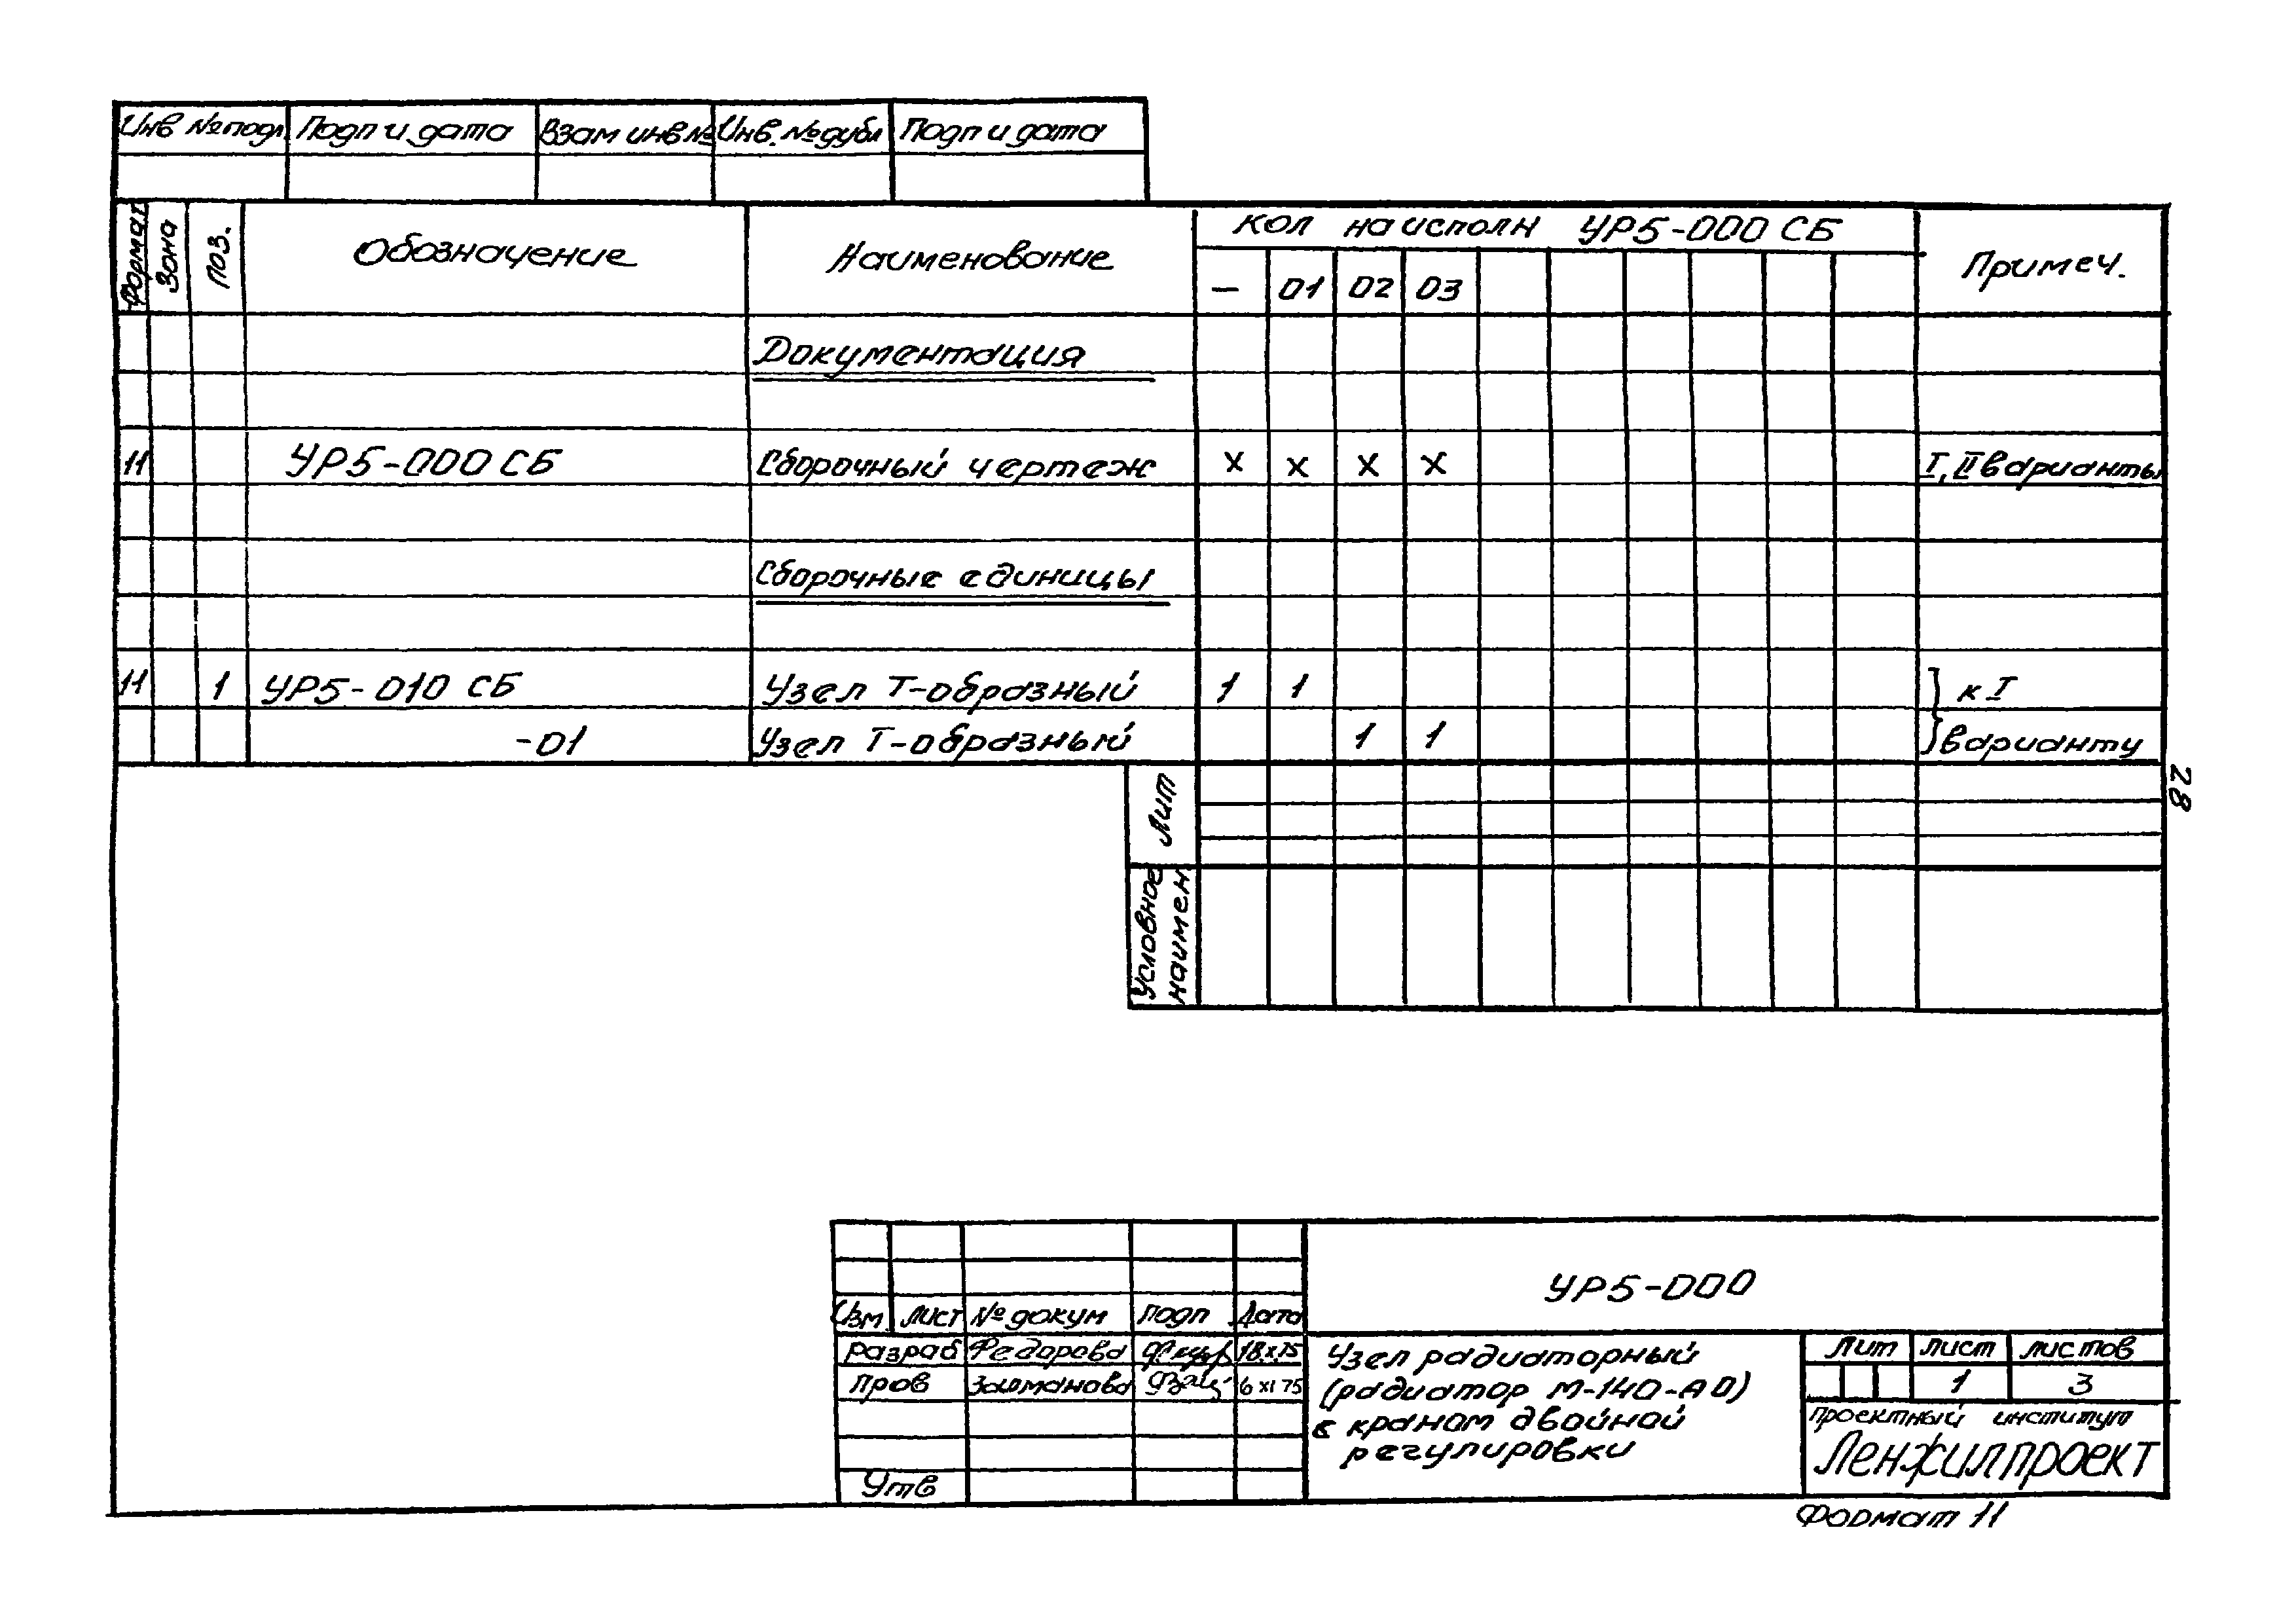 Инв № подл Подп и дата Взам инв № Инв. № дубл Подп и дата
Формат Зона Поз. Обозначение Наименование Кол на исполн УР5-000 СБ Примеч.
— 01 02 03
Документация
11 УР5-000 СБ Сборочный чертеж X X X X I, II варианты
Сборочные единицы
11 1 УР5-010 СБ Узел Т-образный 1 1 к I
-01 Узел Т-образный 1 1 варианту
Лит
Условное
наимен
28
УР5-000
Изм Лист № докум Подп Дата
Разраб Федорова 18.X.75
Пров 6 XI 75
Утв
Узел радиаторный
(радиатор М-140-АО)
с краном двойной
регулировки
Лит Лист Листов
1 3
Проектный институт
Ленжилпроект
Формат 11